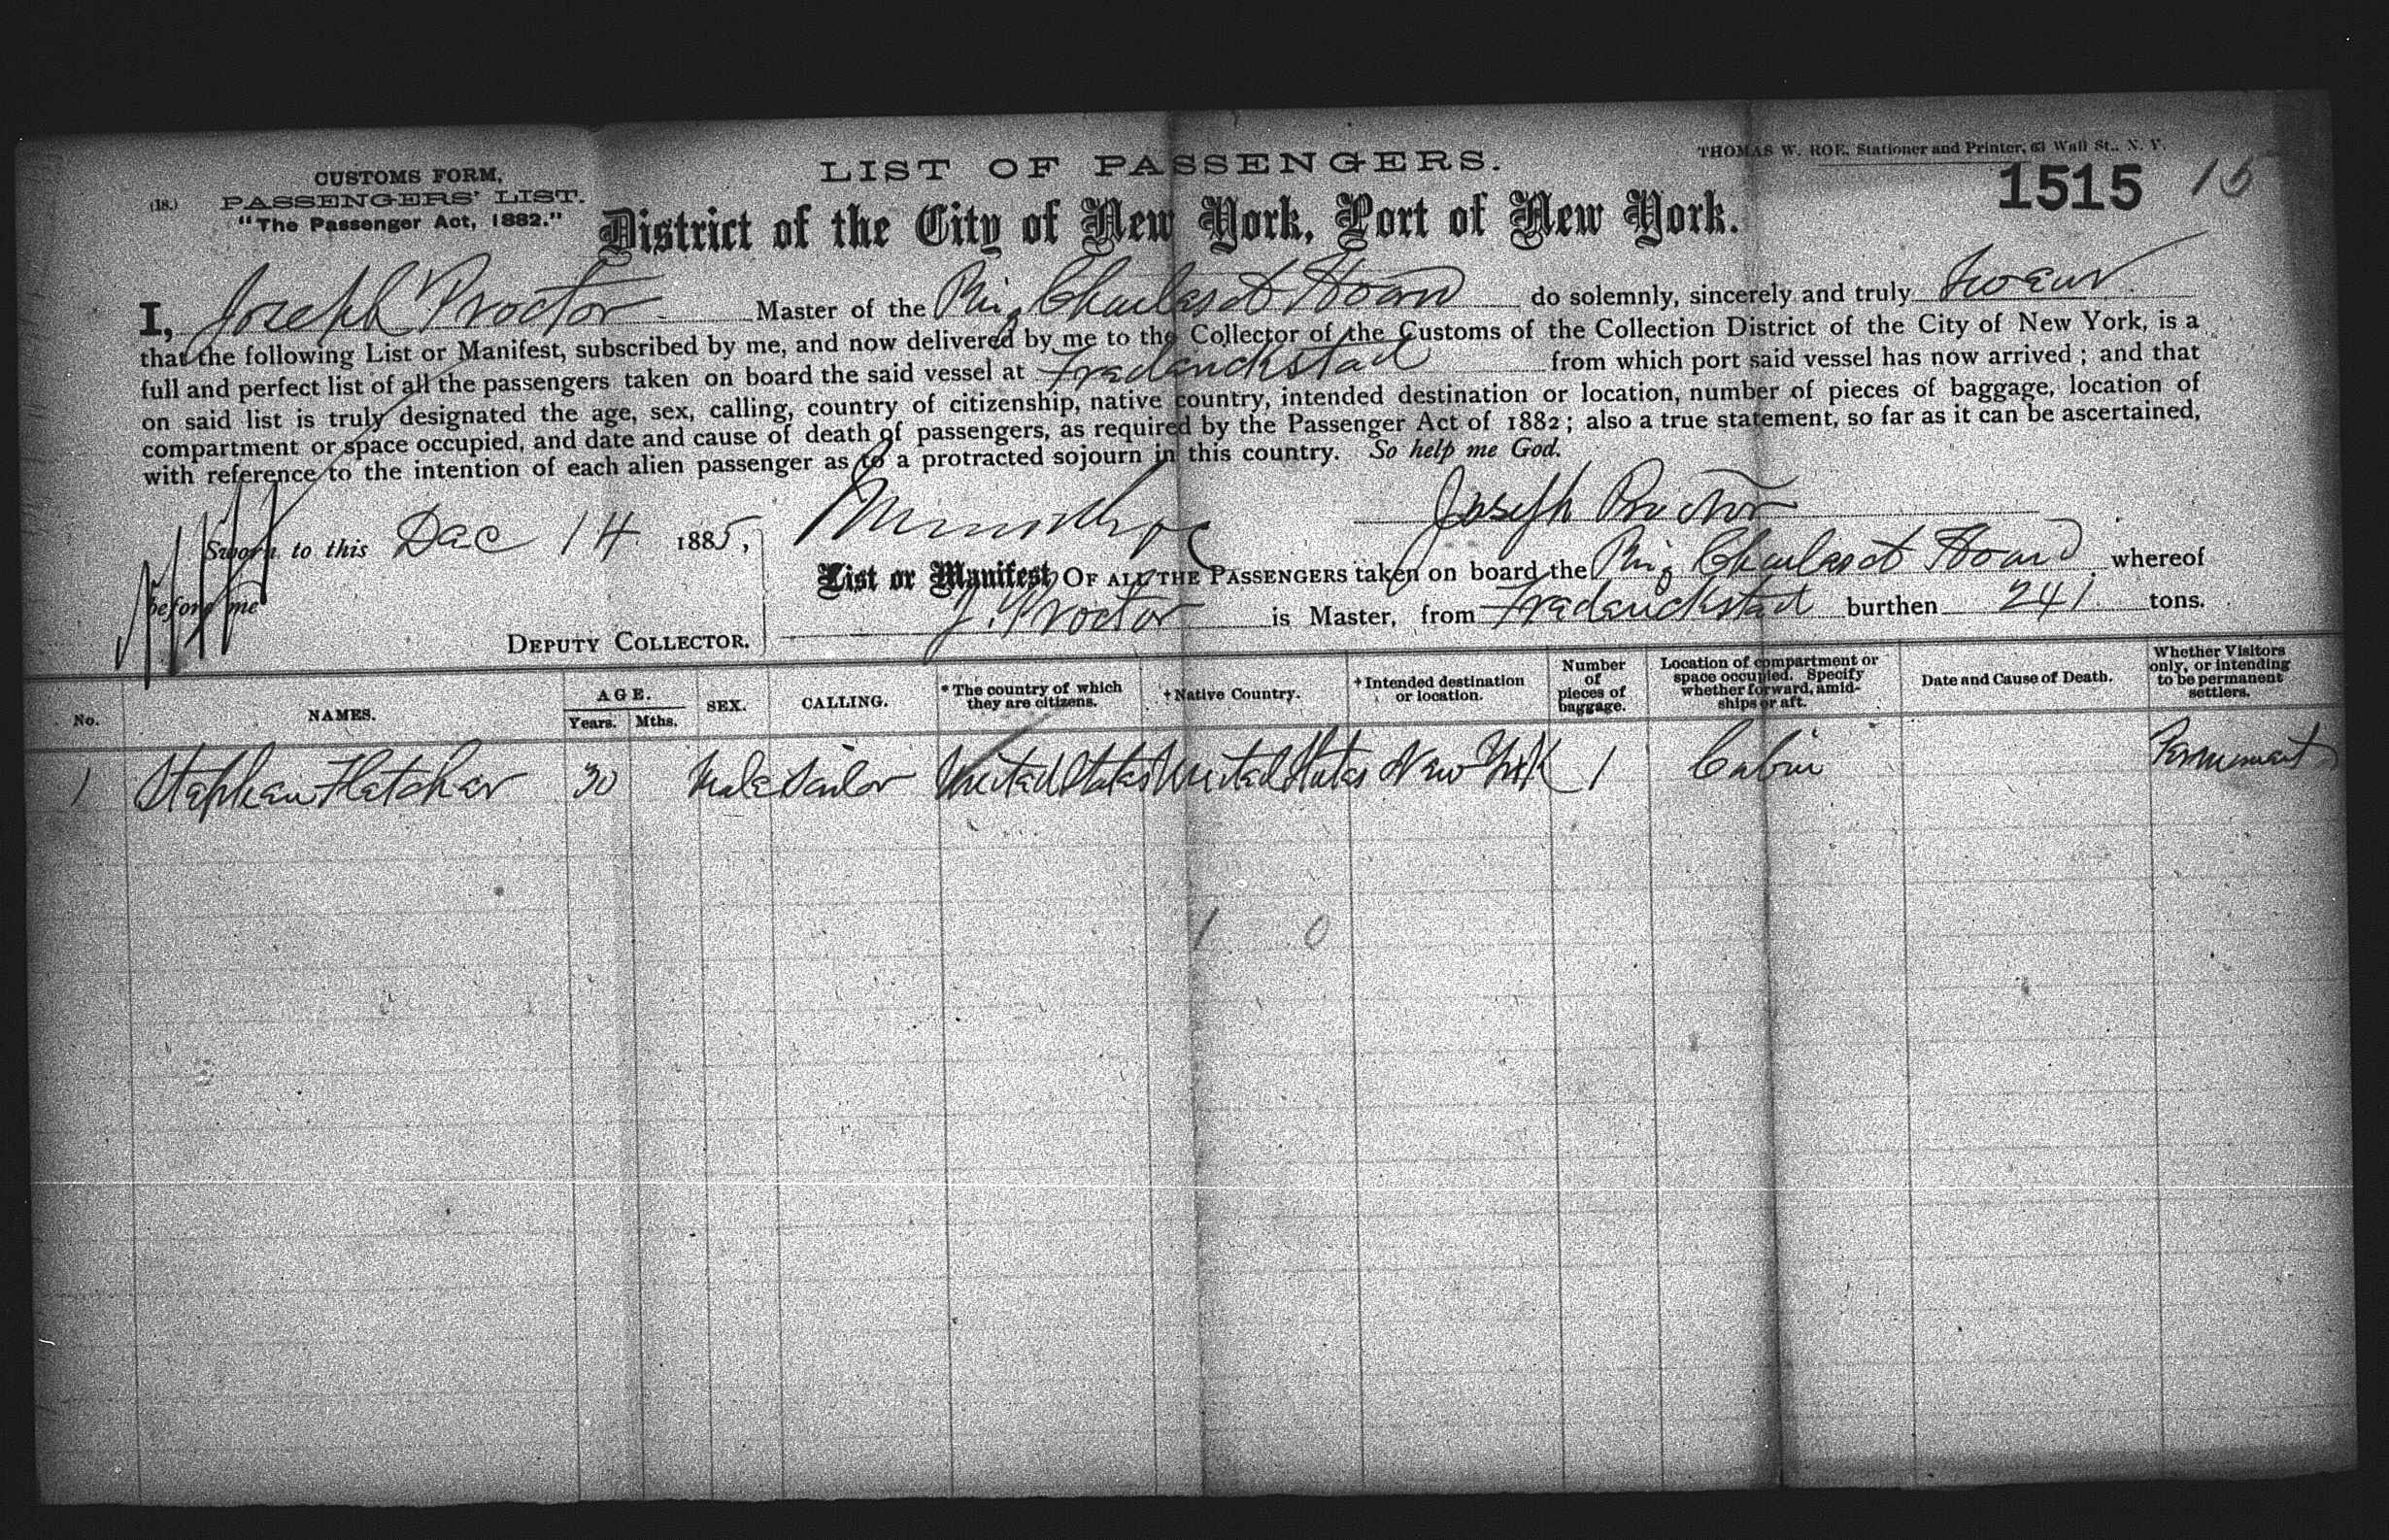 CUSTOMS FORM,
(18.) PASSENGERS' LIST.
"The Passenger Act, 1882."
LIST OF PASSENGERS.
THOMAS W. ROE, Stationer and Printer, 63 Wall St., N. Y.
1515 15
District of the City of New York, Port of New York.
I, Joseph Proctor Master of the Brig Hoard do solemnly, sincerely and truly swear
that the following List or Manifest, subscribed by me, and now delivered by me to the Collector of the Customs of the Collection District of the City of New York, is a
full and perfect list of all the passengers taken on board the said vessel at Frederickstad from which port said vessel has now arrived; and that
on said list is truly designated the age, sex, calling, country of citizenship, native country, intended destination or location, number of pieces of baggage, location of
compartment or space occupied, and date and cause of death of passengers, as required by the Passenger Act of 1882; also a true statement, so far as it can be ascertained,
with reference to the intention of each alien passenger as to a protracted sojourn in this country. So help me God.
Joseph Proctor
Sworn to this Dec 14 1885,
before me
DEPUTY COLLECTOR.
List or Manifest OF ALL THE PASSENGERS taken on board the Brig Hoard whereof
J. Proctor is Master, from Frederickstad burthen 241 tons.
No. NAMES. AGE. Years. Mths. SEX. CALLING. * The country of which they are citizens. † Native Country. † Intended destination or location. Number of pieces of baggage. Location of compartment or space occupied. Specify whether forward, amidships or aft. Date and Cause of Death. Whether Visitors only, or intending to be permanent settlers.
1 Stephen Fletcher 30 Male Sailor United States United States New York 1 Cabin Permanent
1 0